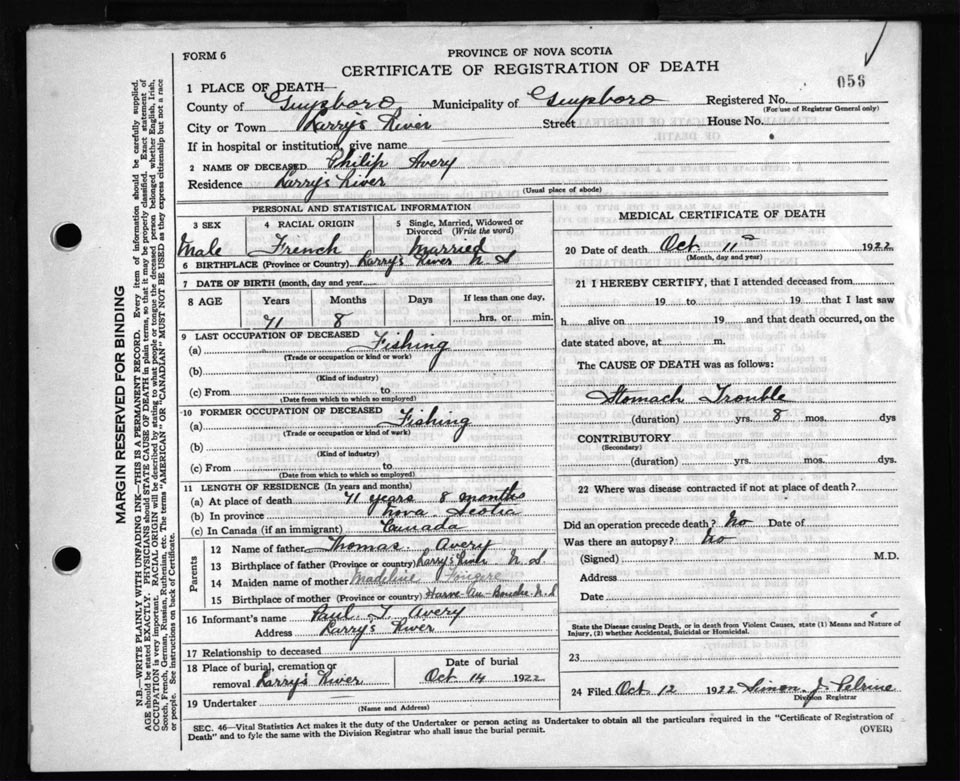 FORM 6
PROVINCE OF NOVA SCOTIA
CERTIFICATE OF REGISTRATION OF DEATH
058
1 PLACE OF DEATH—
County of Guysboro Municipality of Guysboro Registered No.
(For use of Registrar General only)
City or Town Larry's River Street House No.
If in hospital or institution, give name
2 NAME OF DECEASED Philip Avery
Residence Larry's River
(Usual place of abode)
PERSONAL AND STATISTICAL INFORMATION
3 SEX 4 RACIAL ORIGIN 5 Single, Married, Widowed or Divorced (Write the word)
Male French Married
6 BIRTHPLACE (Province or Country) Larry's River N S
7 DATE OF BIRTH (month, day and year)
8 AGE Years Months Days If less than one day,
71 8 hrs. or min.
9 LAST OCCUPATION OF DECEASED
(a) Fishing
(Trade or occupation or kind or work)
(b)
(Kind of industry)
(c) From to
(Date from which to which so employed)
10 FORMER OCCUPATION OF DECEASED
(a) Fishing
(Trade or occupation or kind of work)
(b)
(Kind of industry)
(c) From to
(Date from which to which so employed)
11 LENGTH OF RESIDENCE (In years and months)
(a) At place of death 71 years 8 months
(b) In province Nova Scotia
(c) In Canada (if an immigrant) Canada
Parents
12 Name of father Thomas Avery
13 Birthplace of father (Province or country) Larry's River N S
14 Maiden name of mother Madeline Fougere
15 Birthplace of mother (Province or country) Harve-Au-Bouche N.S
16 Informant's name Paul T. Avery
Address Larry's River
17 Relationship to deceased
18 Place of burial, cremation or removal Larry's River
Date of burial
Oct 14 1922
19 Undertaker
(Name and Address)
MEDICAL CERTIFICATE OF DEATH
20 Date of death Oct 11 1922
(Month, day and year)
21 I HEREBY CERTIFY, that I attended deceased from
19 to 19 that I last saw
h alive on 19 and that death occurred, on the
date stated above, at m.
The CAUSE OF DEATH was as follows:
Stomach Trouble
(duration) yrs. 8 mos. dys
CONTRIBUTORY
(Secondary)
(duration) yrs. mos. dys.
22 Where was disease contracted if not at place of death?
Did an operation precede death? No Date of
Was there an autopsy? No
(Signed) M.D.
Address
Date
State the Disease causing Death, or in death from Violent Causes, state (1) Means and Nature of Injury, (2) whether Accidental, Suicidal or Homicidal.
23
24 Filed Oct 12 1922 Simon J. Pelrine
Division Registrar
SEC. 46—Vital Statistics Act makes it the duty of the Undertaker or person acting as Undertaker to obtain all the particulars required in the "Certificate of Registration of
Death" and to fyle the same with the Division Registrar who shall issue the burial permit.
(OVER)
MARGIN RESERVED FOR BINDING
N.B.—WRITE PLAINLY WITH UNFADING INK—THIS IS A PERMANENT RECORD. Every item of information should be carefully supplied.
AGE should be stated EXACTLY. PHYSICIANS should STATE CAUSE OF DEATH in plain terms, so that it may be properly classified. Exact statement of
OCCUPATION is very important. RACIAL ORIGIN will be described by stating to what people or tongue the deceased person belonged whether English, Irish,
Scotch, French, German, Russian, Ruthenian, etc. The terms "AMERICAN" OR "CANADIAN" MUST NOT BE USED as they express citizenship but not a race
or people. See instructions on back of Certificate.